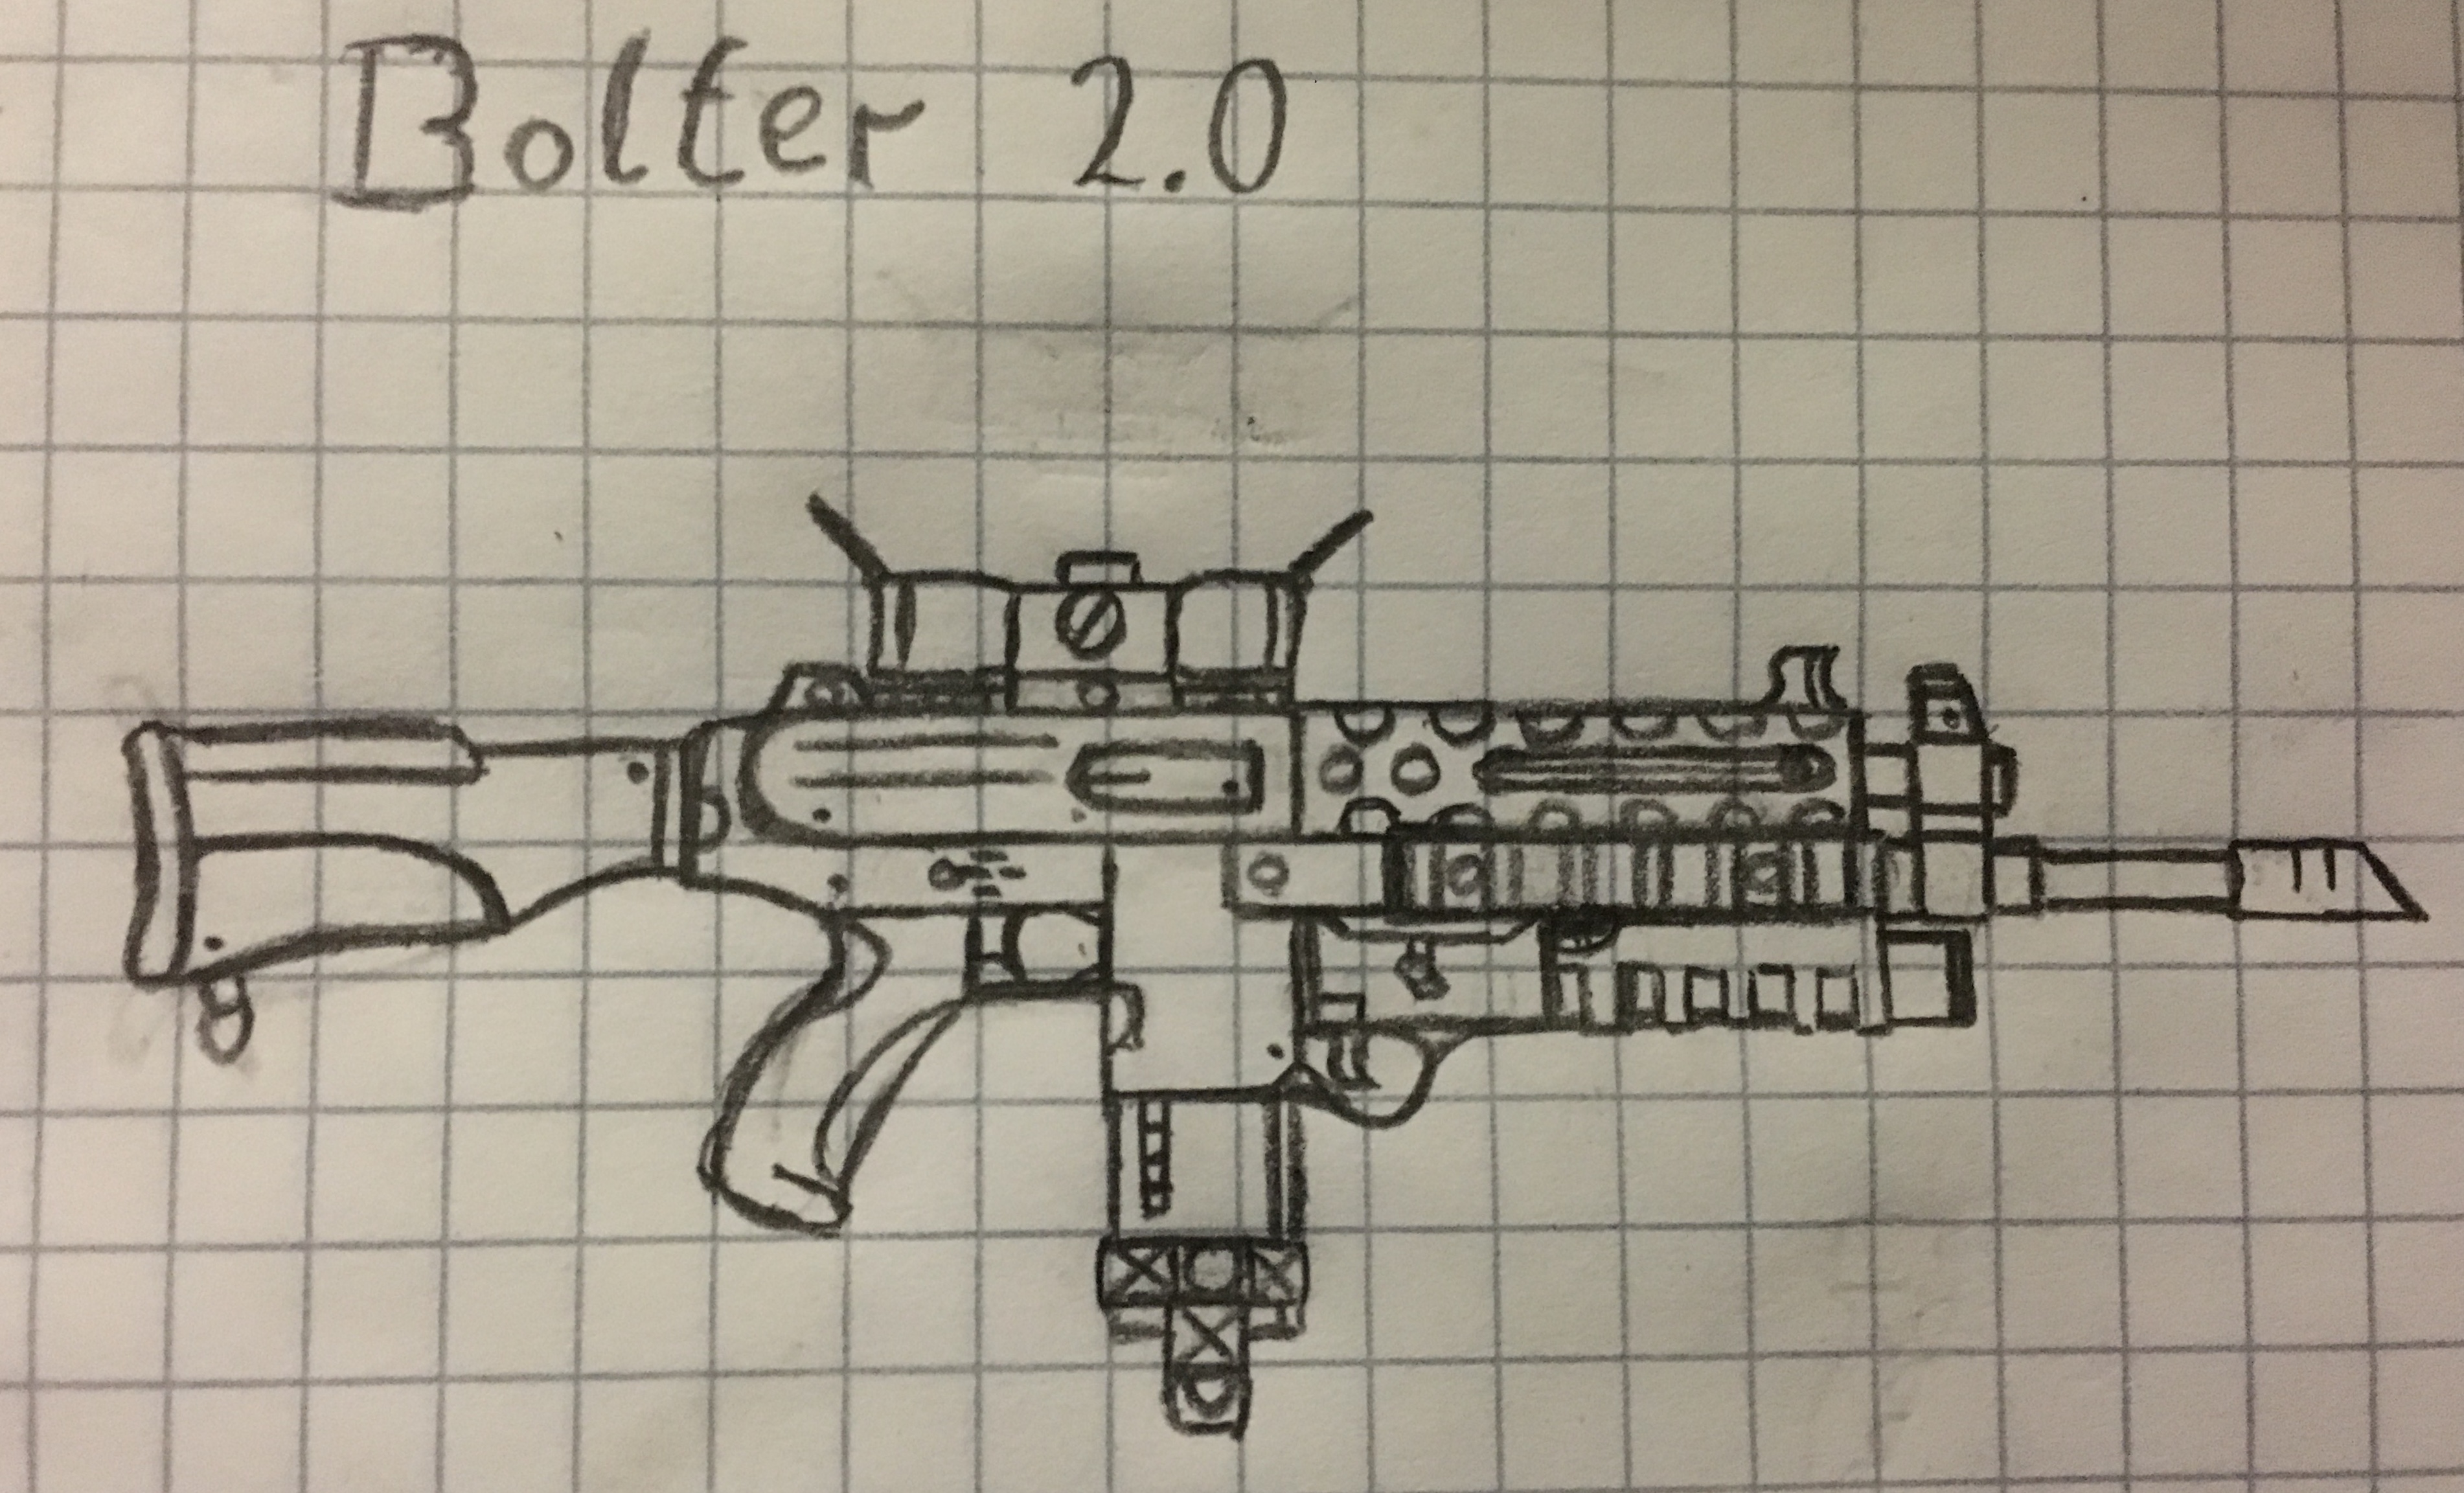 Bolter 2.0